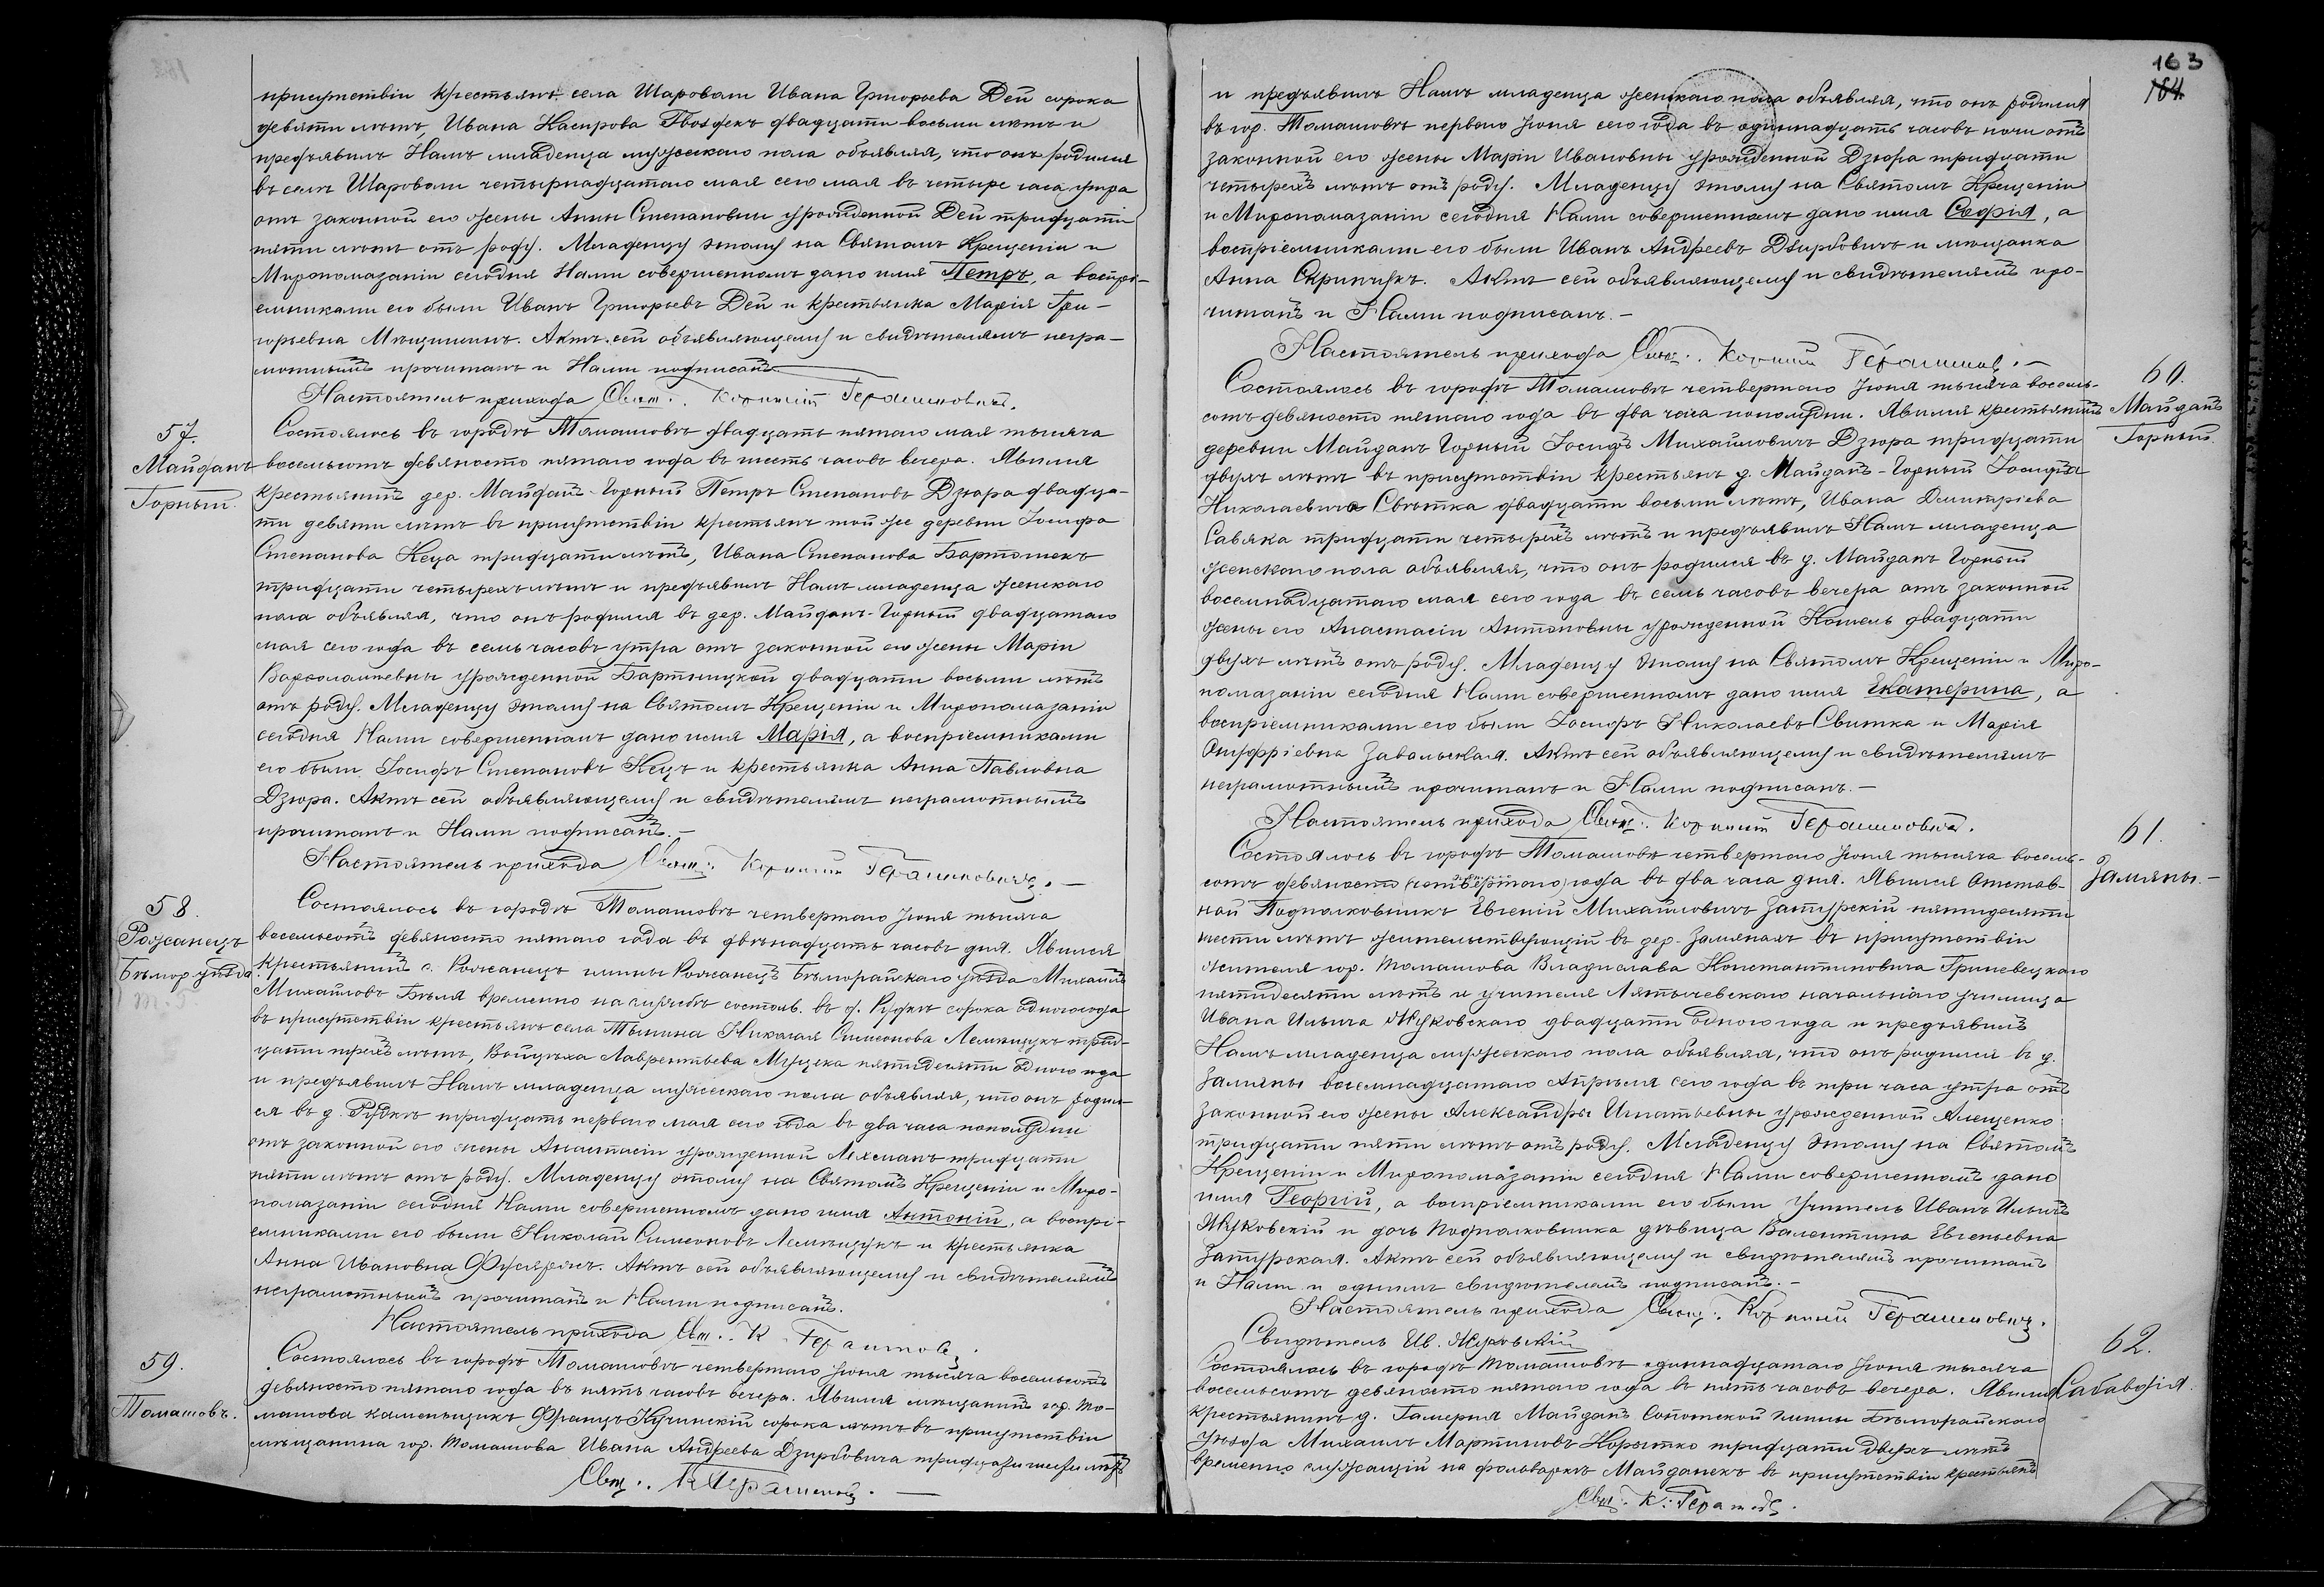 присутствіи крестьянъ села Шароволи Ивана Григорьева Дей сорока
девяти лѣтъ, Ивана Каспрова Гвоздекъ двадцати восьми лѣтъ и
предъявилъ Намъ младенца мужескаго пола объявляя, что онъ родился
въ селѣ Шароволи четырнадцатаго мая сего мая въ четыре часа утра
отъ законной его жены Анны Степановны урожденной Дей тридцати
пяти лѣтъ отъ роду. Младенцу этому на Святомъ Крещеніи и
Миропомазаніи сегодня Нами совершенномъ дано имя Петръ, а воспрі-
емниками его были Иванъ Григорьевъ Дей и крестьянка Марія Гри-
горьевна Мѣщишинъ. Актъ сей объявляющему и свидѣтелямъ негра-
мотнымъ прочитанъ и Нами подписанъ.
Настоятель прихода Свящ. Корнилій Герасимовичъ.
57.
Майданъ
Горный.
Состоялось въ городѣ Томашовѣ двадцать пятаго мая тысяча
восемьсотъ девяносто пятаго года въ шесть часовъ вечера. Явился
крестьянинъ дер. Майданъ-Горный Петръ Степановъ Дзюра двадца-
ти девяти лѣтъ въ присутствіи крестьянъ той же деревни Іосифа
Степанова Кеца тридцати лѣтъ, Ивана Степанова Бартошекъ
тридцати четырехъ лѣтъ и предъявилъ Намъ младенца женскаго
пола объявляя, что онъ родился въ дер. Майданъ-Горный двадцатаго
мая сего года въ семь часовъ утра отъ законной его жены Маріи
Варфоломеевны урожденной Бартницкой двадцати восьми лѣтъ
отъ роду. Младенцу этому на Святомъ Крещеніи и Миропомазаніи
сегодня Нами совершенномъ дано имя Марія, а воспріемниками
его были Іосифъ Степановъ Кецъ и крестьянка Анна Павловна
Дзюра. Актъ сей объявляющему и свидѣтелямъ неграмотнымъ
прочитанъ и Нами подписанъ.-
Настоятель прихода Свящ. Корнилій Герасимовичъ.-
58.
Рожанецъ
Бѣлгор. уѣзда
Состоялось въ городѣ Томашовѣ четвертаго Іюня тысяча
восемьсотъ девяносто пятаго года въ двѣнадцать часовъ дня. Явился
крестьянинъ с. Рожанецъ гмины Рожанецъ Бѣлгорайскаго уѣзда Михаилъ
Михайловъ Бѣля временно на службѣ состоящ. въ ф. Рудкѣ сорока одного года
въ присутствіи крестьянъ села Тынина Николая Симеонова Лемищукъ трид-
цати трехъ лѣтъ, Войцѣха Лаврентьева Мущека пятидесяти одного года
и предъявилъ Намъ младенца мужескаго пола объявляя, что онъ родил-
ся въ д. Рудкѣ тридцать перваго мая сего года въ два часа пополудни
отъ законной его жены Анастасіи урожденной Лехманъ тридцати
пяти лѣтъ отъ роду. Младенцу этому на Святомъ Крещеніи и Миро-
помазаніи сегодня Нами совершенномъ дано имя Антоній, а воспрі-
емниками его были Николай Симеоновъ Лемищукъ и крестьянка
Анна Ивановна Фусярожъ. Актъ сей объявляющему и свидѣтелямъ
неграмотнымъ прочитанъ и Нами подписанъ.
Настоятель прихода Свящ. К. Герасимов
59.
Томашовъ.
Состоялось въ городѣ Томашовѣ четвертаго Іюня тысяча восемьсотъ
девяносто пятаго года въ пять часовъ вечера. Явился мѣщанинъ гор. То-
машова каменьщикъ Францъ Кучинскій сорока лѣтъ въ присутствіи
мѣщанина гор. Томашова Ивана Андреева Дзирбовича тридцати шести лѣтъ
Свящ. К. Герасимов.-
163
164
и предъявилъ Намъ младенца женскаго пола объявляя, что онъ родился
въ гор. Томашовѣ перваго Іюня сего года въ одиннадцать часовъ ночи отъ
законной его жены Маріи Ивановны урожденной Дзюра тридцати
четырехъ лѣтъ отъ роду. Младенцу этому на Святомъ Крещеніи
и Миропомазаніи сегодня Нами совершенномъ дано имя Софія, а
воспріемниками его были Иванъ Андреевъ Дзирбовичъ и мѣщанка
Анна Скрипчукъ. Актъ сей объявляющему и свидѣтелямъ про-
читанъ и Нами подписанъ.-
Настоятель прихода Свящ. Корнилій Герасимов.-
60.
Майданъ
Горный.
Состоялось въ городѣ Томашовѣ четвертаго Іюня тысяча восемь-
сотъ девяносто пятаго года въ два часа пополудни. Явился крестьянинъ
деревни Майданъ Горный Іосифъ Михайловичъ Дзюра тридцати
двухъ лѣтъ въ присутствіи крестьянъ д. Майданъ-Горный Іосифа
Николаевича Свѣтка двадцати восьми лѣтъ, Ивана Дмитріева
Савяка тридцати четырехъ лѣтъ и предъявилъ Намъ младенца
женскаго пола объявляя, что онъ родился въ д. Майданъ Горный
восемнадцатаго мая сего года въ семь часовъ вечера отъ законной
жены его Анастасіи Антоновны урожденной Кошель двадцати
двухъ лѣтъ отъ роду. Младенцу этому на Святомъ Крещеніи и Миро-
помазаніи сегодня Нами совершенномъ дано имя Екатерина, а
воспріемниками его были Іосифъ Николаевъ Свитка и Марія
Онуфріевна Завальская. Актъ сей объявляющему и свидѣтелямъ
неграмотнымъ прочитанъ и Нами подписанъ.-
Настоятель прихода Свящ. Корнилій Герасимовичъ.
61.
Замяны.-
Состоялось въ городѣ Томашовѣ четвертаго Іюня тысяча восемь-
сотъ девяносто (четвертаго) года въ два часа дня. Явился Отстав-
ной Подполковникъ Евгеній Михайловичъ Затурскій пятидесяти
шести лѣтъ жительствующій въ дер. Замянахъ въ присутствіи
жителя гор. Томашова Владислава Константиновича Гриневецкаго
пятидесяти лѣтъ и учителя Лятычевскаго начальнаго училища
Ивана Ильича Жуковскаго двадцати одного года и предъявилъ
Намъ младенца мужескаго пола объявляя, что онъ родился въ д.
Замяны восемнадцатаго Апрѣля сего года въ три часа утра отъ
законной его жены Александры Игнатьевны урожденной Алещенко
тридцати пяти лѣтъ отъ роду. Младенцу этому на Святомъ
Крещеніи и Миропомазаніи сегодня Нами совершенномъ дано
имя Георгій, а воспріемниками его были Учитель Иванъ Ильичъ
Жуковскій и дочь Подполковника дѣвица Валентина Евгеньевна
Затурская. Актъ сей объявляющему и свидѣтелямъ прочитанъ
и Нами и однимъ свидѣтелемъ подписанъ.-
Настоятель прихода Свящ. Корнилій Герасимовичъ.
Свидѣтель Ив. Жуковскій
62.
Сабавдія.
Состоялось въ городѣ Томашовѣ одиннадцатаго Іюня тысяча
восемьсотъ девяносто пятаго года въ пять часовъ вечера. Явился
крестьянинъ д. Гамерня Майданъ Сопотской гмины Бѣлгорайскаго
уѣзда Михаилъ Мартиновъ Корытко тридцати двухъ лѣтъ
временно служащій на фольваркѣ Майданекъ въ присутствіи крестьянъ
Свящ. К. Герасимов.